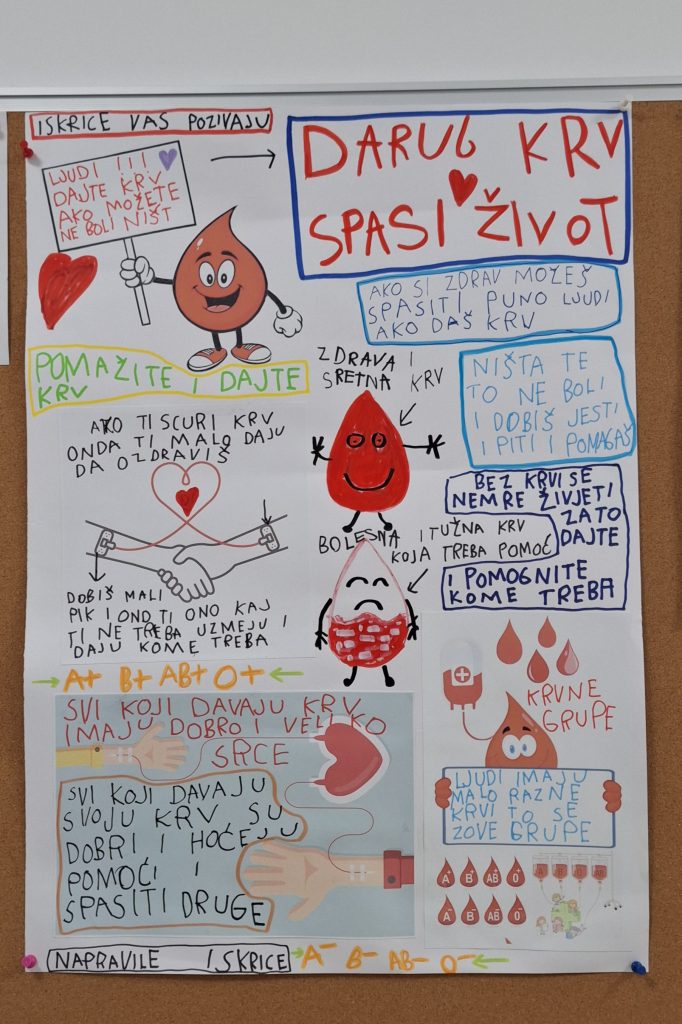 ISKRICE VAS POZIVAJU
LJUDI !!!
DAJTE KRV
AKO MOŽETE
NE BOLI NIŠT
DARUJ KRV
SPASI ŽIVOT
AKO SI ZDRAV MOŽEŠ
SPASITI PUNO LJUDI
AKO DAŠ KRV
POMAŽITE I DAJTE
KRV
ZDRAVA I
SRETNA KRV
NIŠTA TE
TO NE BOLI
I DOBIŠ JESTI
I PITI I POMAGAŠ
AKO TI SCURI KRV
ONDA TI MALO DAJU
DA OZDRAVIŠ
BEZ KRVI SE
NEMRE ŽIVJETI
ZATO
DAJTE
I POMOGNITE
KOME TREBA
BOLESNA I TUŽNA KRV
KOJA TREBA POMOĆ
DOBIŠ MALI
PIK I OND TI ONO KAJ
TI NE TREBA UZMEJU I
DAJU KOME TREBA
A+ B+ AB+ O+
SVI KOJI DAVAJU KRV
IMAJU DOBRO I VELIKO
SRCE
SVI KOJI DAVAJU
SVOJU KRV SU
DOBRI I HOĆEJU
POMOĆI I
SPASITI DRUGE
KRVNE
GRUPE
LJUDI IMAJU
MALO RAZNE
KRVI TO SE
ZOVE GRUPE
A+ B+ AB+ O+
A- B- AB- O-
A B AB O
NAPRAVILE ISKRICE
A- B- AB- O-